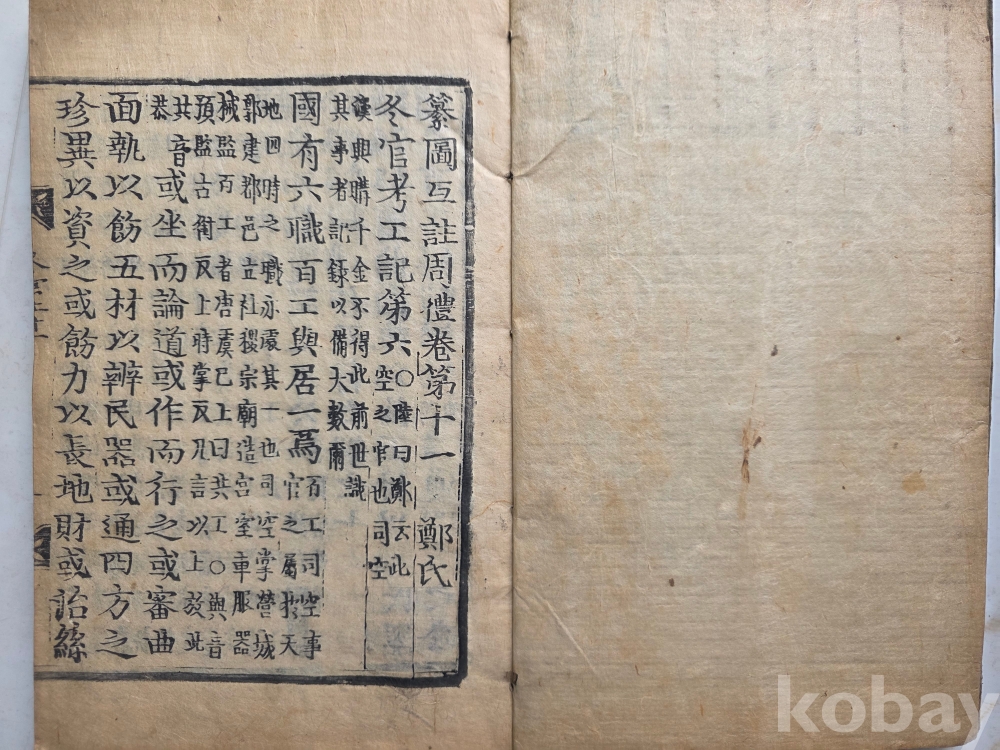 纂圖互註周禮卷第十一 鄭氏
冬官考工記第六〇陸曰鄭云此
空之官也司空
漢興購千金不得此前世識
其事者記錄以備大數爾
國有六職百工與居一焉百工司空事
官之屬於天
地四時之職亦處其一也司空掌營城
郭建都邑立社稷宗廟造宮室車服器
械監百工者唐虞已上曰共工〇與音
預監古銜反上時掌反凡言以上放此
共音
恭
或坐而論道或作而行之或審曲
面執以飭五材以辨民器或通四方之
珍異以資之或飭力以長地財或治絲
kobay